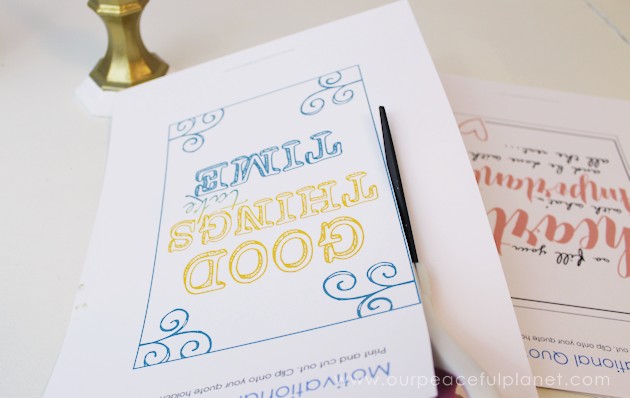 Motivational
Print and cut out. Clip onto your quote holder
GOOD
THINGS
take
TIME
ational Quo
onto your quote ho
so fill your
heart
with what's
importan
and be done with
all the rest...
www.ourpeacefulplanet.com